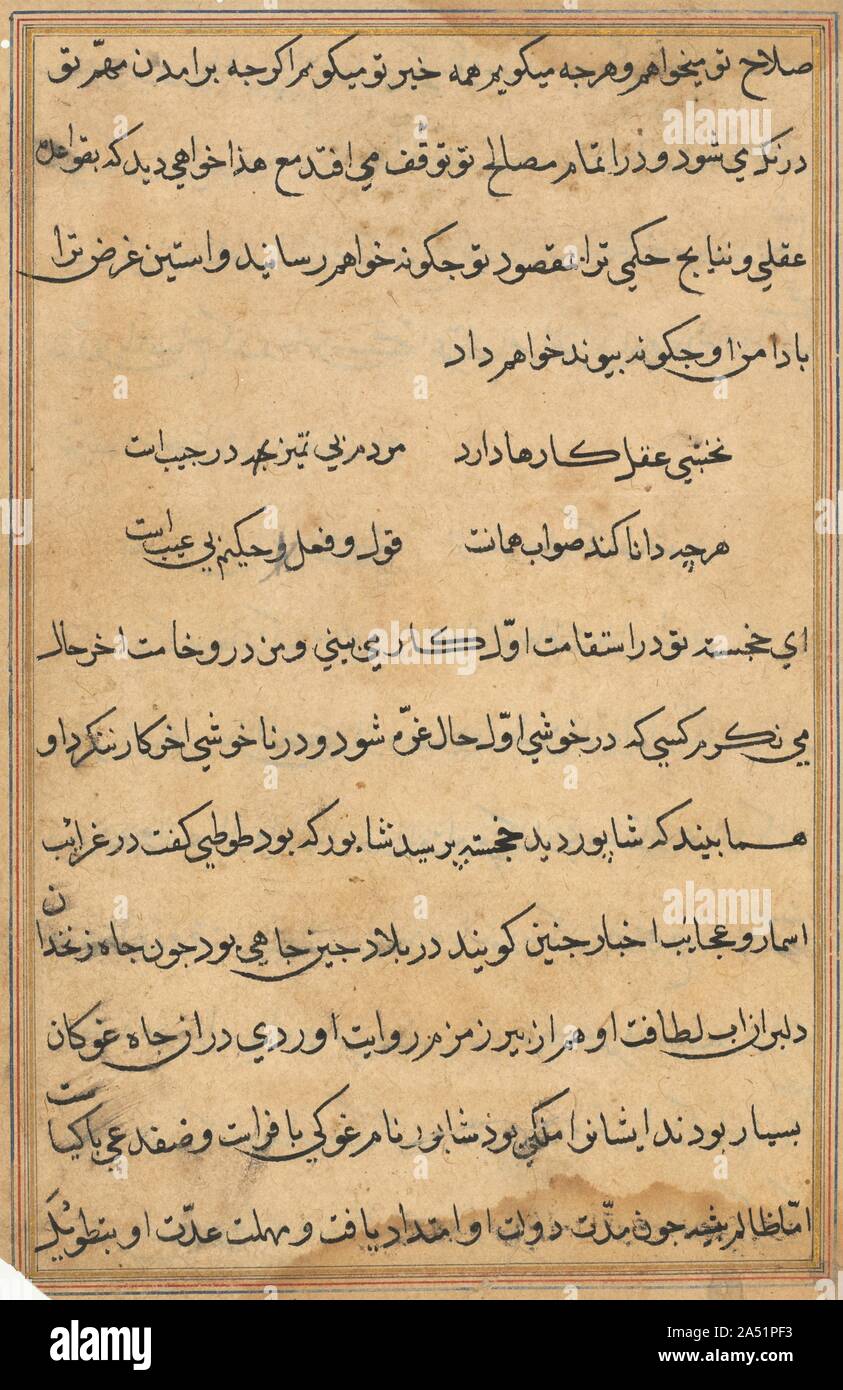 صلاح تو میخواهم و هرجه میکویم همه خیر تو میکویم اکرجه برامدن مهمّ تو
درنکری شود و در اتمام مصالح تو توقف می افتد مع هذا خواهی دید که بقواعد
عقلی و نتایج حکمی ترا بمقصود تو جکونه خواهم رسانید و استین غرض ترا
با دامن او جکونه بیوند خواهم داد
نخشبی عقل کارها دارد مردم بی تمیز در جیب است
هرچه دانا کند صواب همانست قول و فعل حکیم بی عیب است
ای خجسته تو در استقامت اوّل کار می بینی و من در وخامت اخر حال
می نکرم کسی که در خوشی اوّل حال غرّه شود و در ناخوشی اخر کار ننکرد او
همابیند که شاپور دید خجسته پرسید شابور که بود طوطی کفت در غرائب
اسمار و عجایب اخبار جنین کویند در بلاد جین جاهی بود جون جاه زنخدان
دلبران اب لطافت او هم از بیر زمزم روایت اوردی در ان جاه غوکان
بسیار بودند ایشانرا ملکی بود شابور نام غوکی با فراست و ضفدعی با کیاست
امّا ظالم بیشه جون مدّت دولت او امتداد یافت و مهلت عدّت او بتطویل
a alamy
alamy
Image ID: 2A51PF3
www.alamy.com